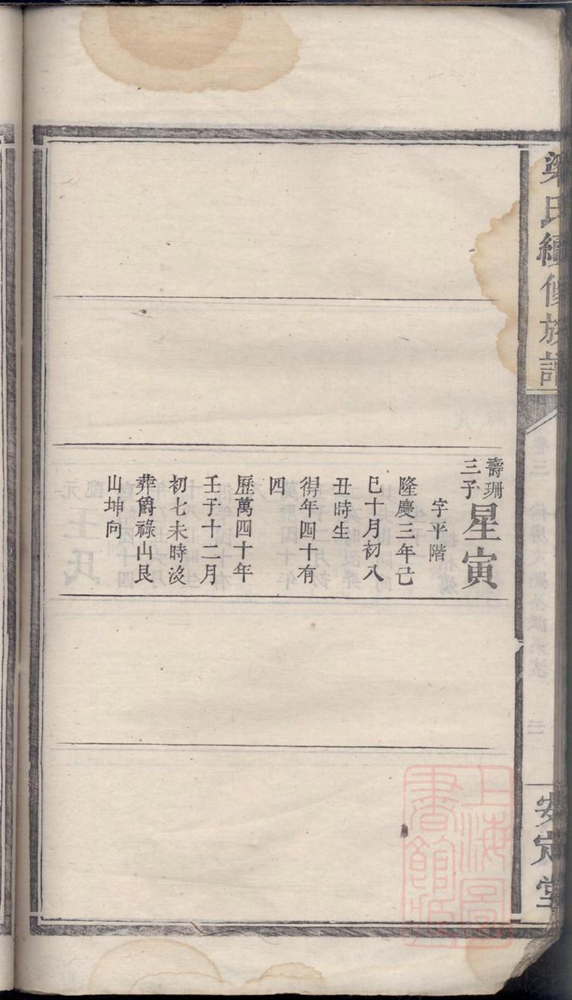 梁氏續修族譜
安定堂
壽珊三子
星寅
字平階
隆慶三年己
巳十月初八
丑時生
得年四十有
四
歷萬四十年
壬子十二月
初七未時沒
葬爵祿山艮
山坤向
上海圖書館藏